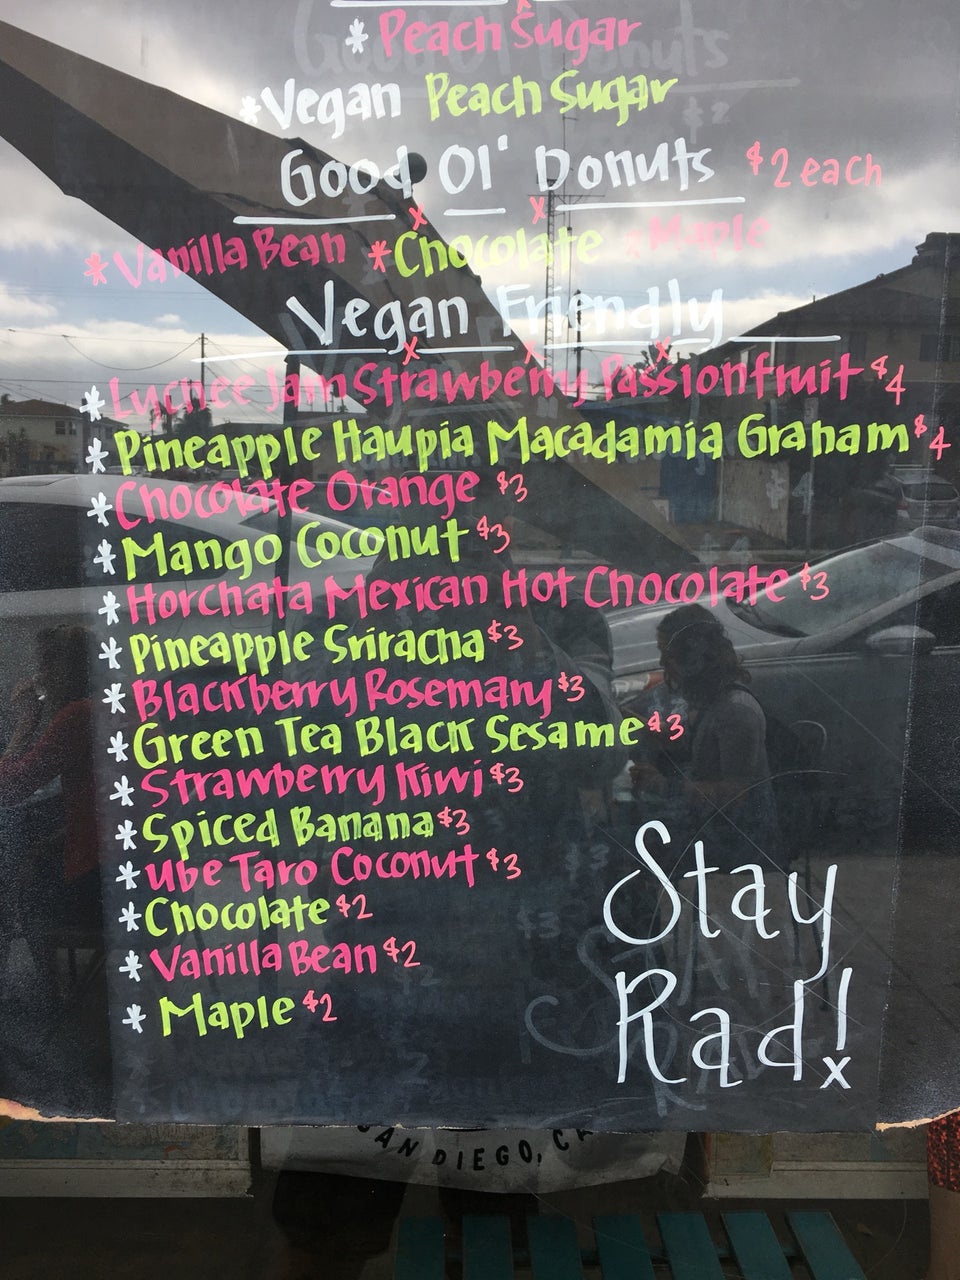 * Peach Sugar
* Vegan Peach Sugar
Good Ol' Donuts $2 each
* Vanilla Bean * Chocolate * Maple
Vegan Friendly
* Lychee Jam Strawberry Passionfruit $4
* Pineapple Haupia Macadamia Graham $4
* Chocolate Orange $3
* Mango Coconut $3
* Horchata Mexican Hot Chocolate $3
* Pineapple Sriracha $3
* Blackberry Rosemary $3
* Green Tea Black Sesame $3
* Strawberry Kiwi $3
* Spiced Banana $3
* Ube Taro Coconut $3
* Chocolate $2
* Vanilla Bean $2
* Maple $2
Stay
Rad!
x
SAN DIEGO, CA